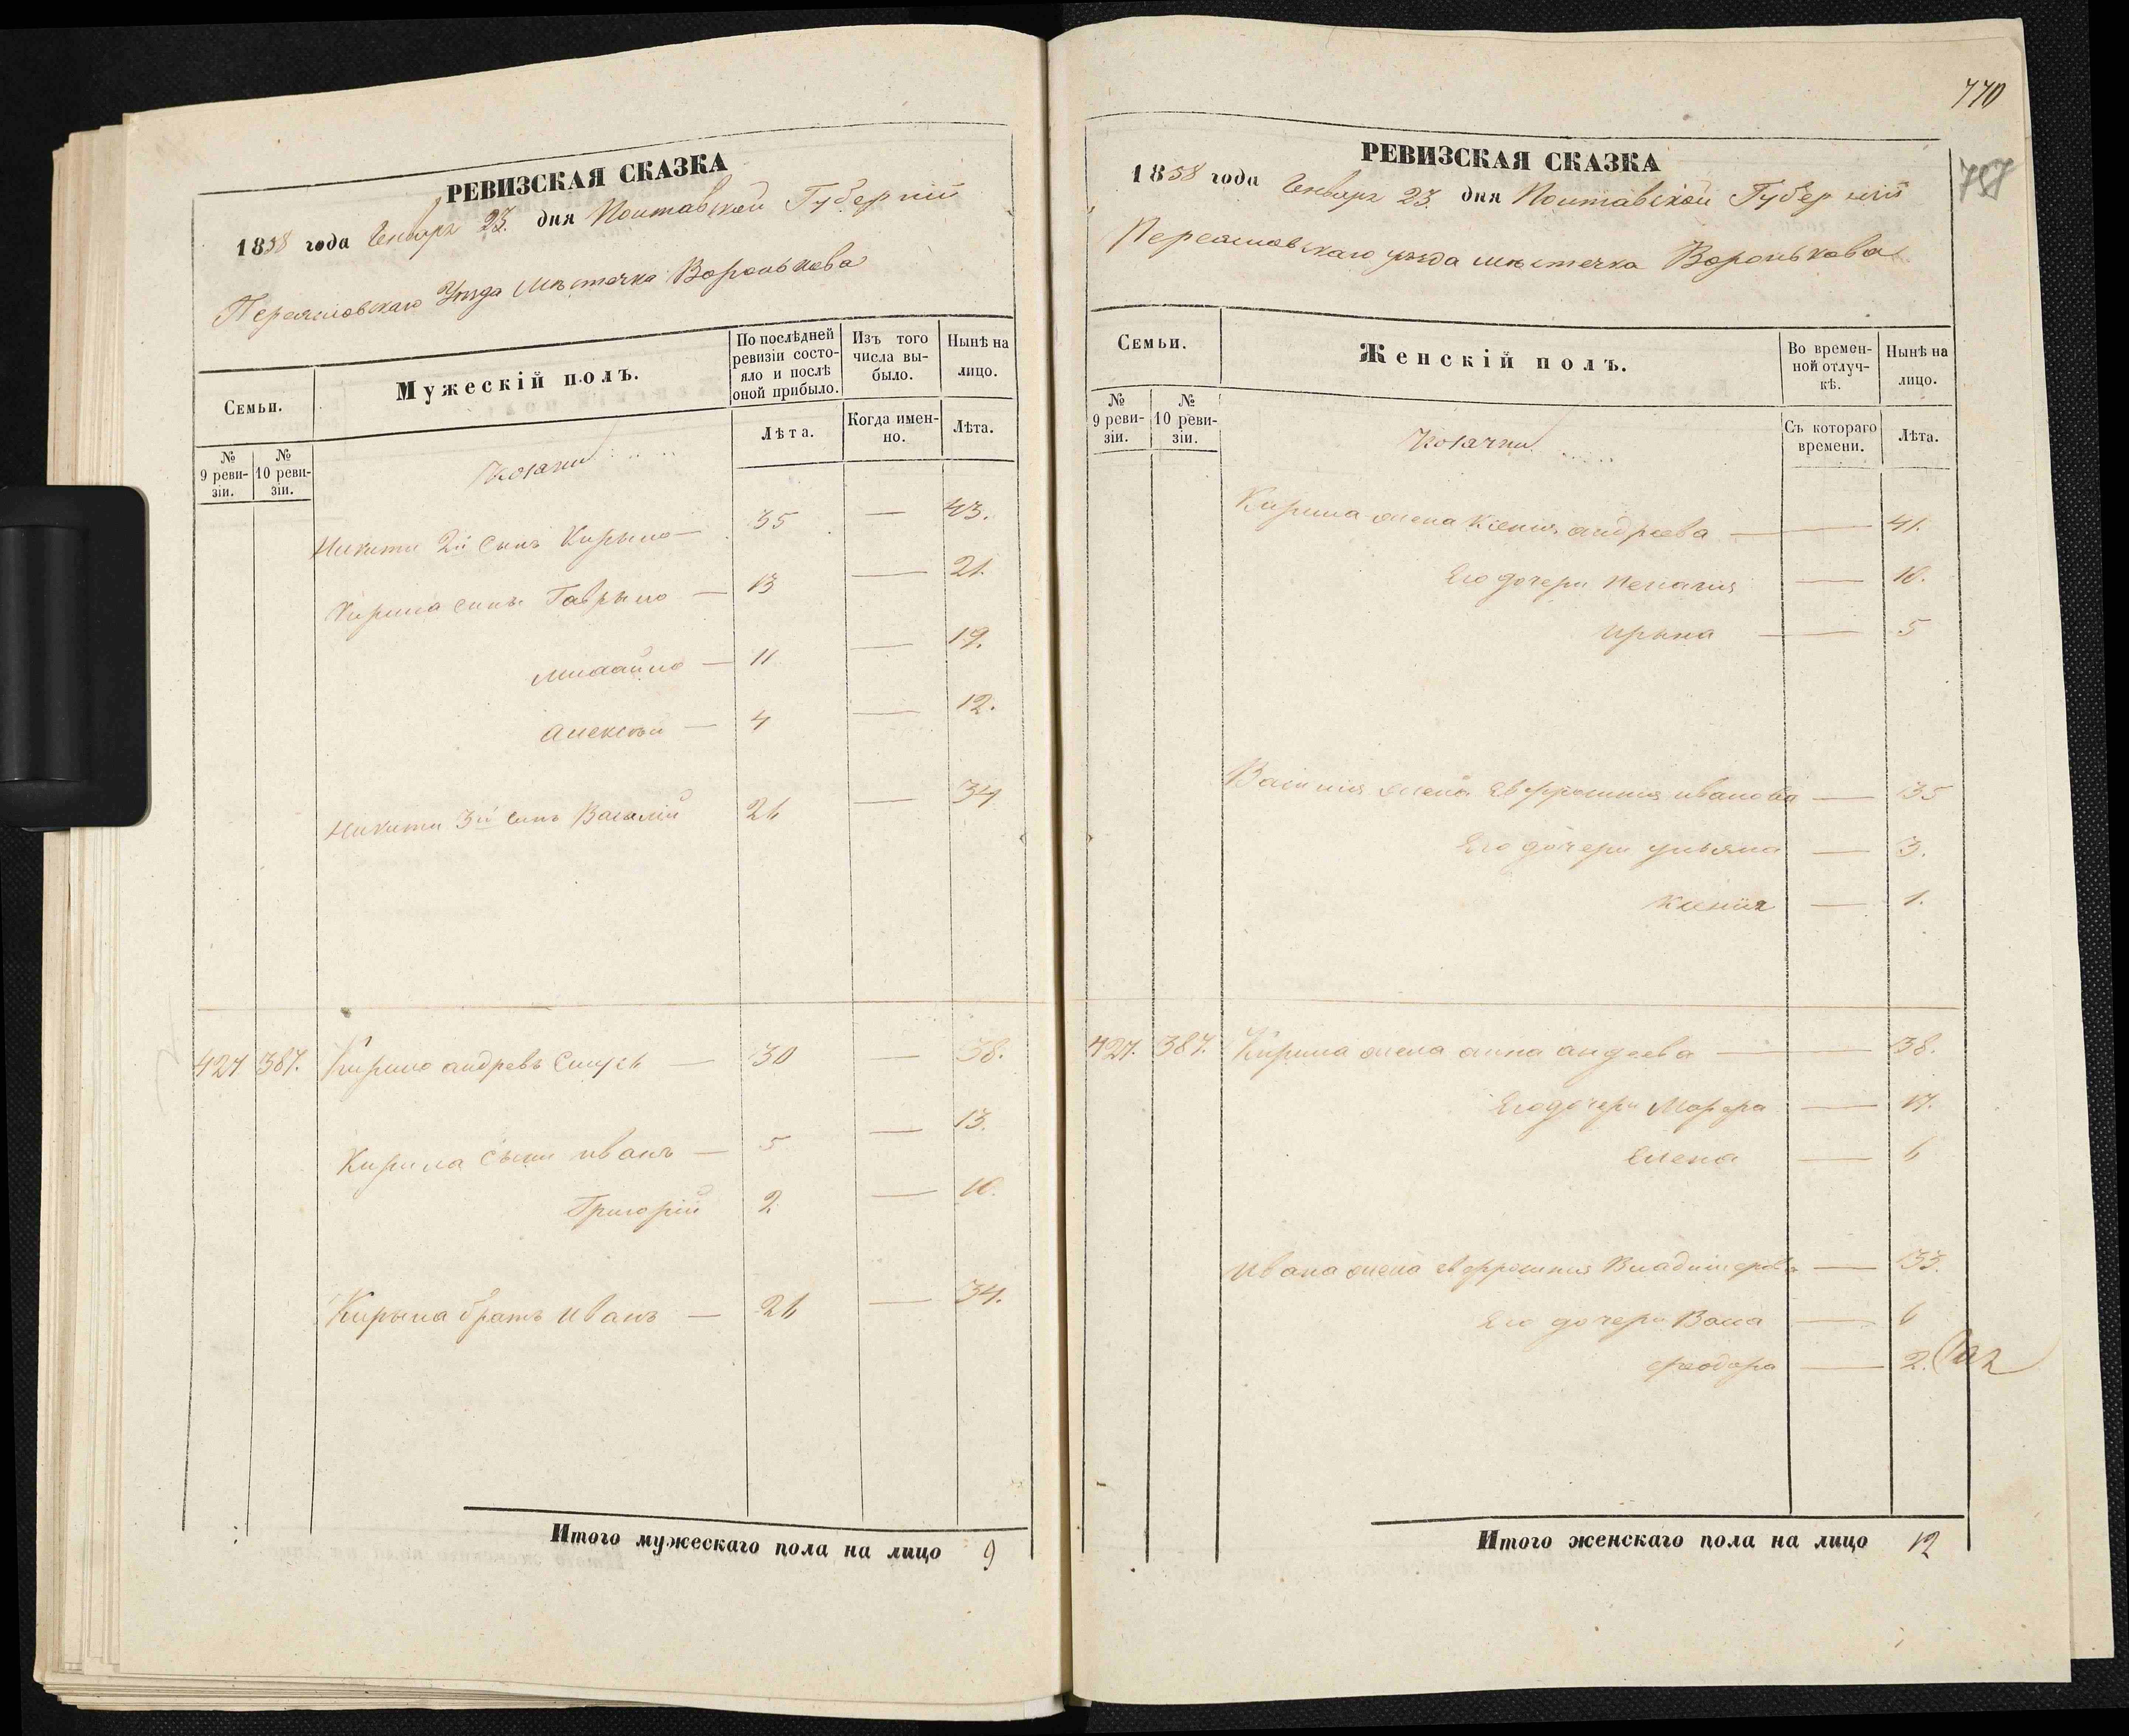 РЕВИЗСКАЯ СКАЗКА
1858 года Генваря 23. дня Полтавской Губерніи
Переяславскаго Уезда Мѣстечка Воронькова
Семьи.
Мужескій полъ.
По послѣдней ревизіи состояло и послѣ оной прибыло.
Изъ того числа выбыло.
Ныне на лицо.
№ 9 ревизіи.
№ 10 ревизіи.
Лѣта.
Когда именно.
Лѣта.
Козаки
Никити 2й Сынъ Кирыло — 35 — 43.
Кирила сины Гаврыло — 13 — 21.
Михайло — 11 — 19.
Алексѣй — 4 — 12.
Никити 3й Сынъ Василій 26 — 34
427 387. Кирило андревъ — 30 — 38.
Кирила Сыни иванъ — 5 — 13.
Григорій 2 — 10.
Кирыла братъ Иванъ — 26 — 34.
Итого мужескаго пола на лицо 9
770
787
РЕВИЗСКАЯ СКАЗКА
1858 года Генваря 23. дня Полтавской Губерніи
Переяславскаго уезда мѣстечка Воронькова
Семьи.
Женскій полъ.
Во временной отлучкѣ.
Нынѣ на лицо.
№ 9 ревизіи.
№ 10 ревизіи.
Съ котораго времени.
Лѣта.
Козачки
Кирила жена Ксенія андреева — 41.
Его дочери Пелагия — 10.
Ирына — 5
Василия жена Евфросиния иванова — 35
Его дочери ульяна — 3.
Ксенiя — 1.
427. 387. Кирила жена анна андеева — 38.
Его дочери Марфра — 17.
Елена — 6
Ивана жена евфросиния — 33.
Его дочери — 6
феодора — 2.
Итого женскаго пола на лицо 12